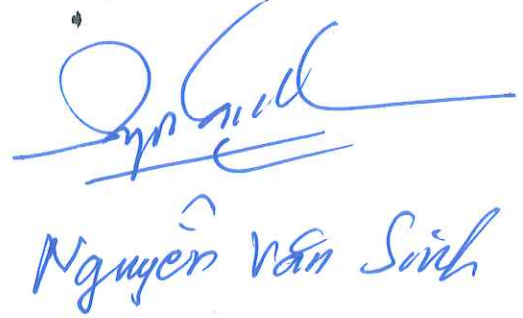 Nguyễn Văn Sinh